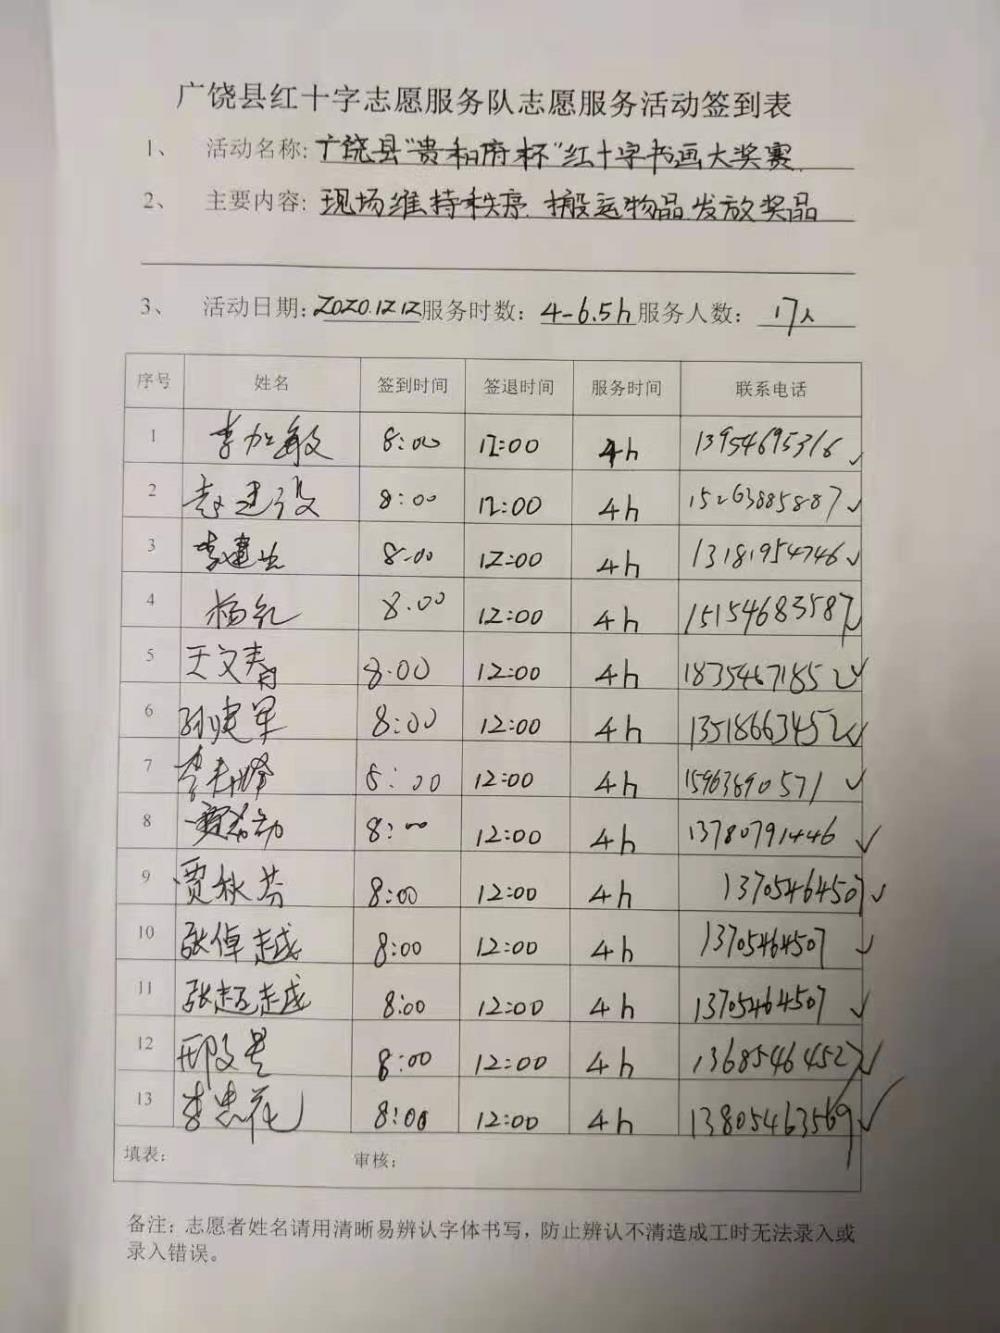 广饶县红十字志愿服务队志愿服务活动签到表
1、 活动名称: 广饶县"贵和府杯"红十字书画大奖赛
2、 主要内容: 现场维持秩序 搬运物品 发放奖品
3、 活动日期: 2020.12.12 服务时数: 4-6.5h 服务人数: 17人
序号 姓名 签到时间 签退时间 服务时间 联系电话
1 李加敏 8:00 12:00 4h 13954695316 ✓
2 赵建设 8:00 12:00 4h 15263885887 ✓
3 李建生 8:00 12:00 4h 13181954746 ✓
4 杨礼 8:00 12:00 4h 15154683587 ✓
5 王文寿 8:00 12:00 4h 18354671852 ✓
6 孙建军 8:00 12:00 4h 13518663452 ✓
7 8:00 12:00 4h 15963890571 ✓
8 8:00 12:00 4h 13780791446 ✓
9 贾秋芬 8:00 12:00 4h 13705464507 ✓
10 张倬越 8:00 12:00 4h 13705464507 ✓
11 张超越 8:00 12:00 4h 13705464507 ✓
12 邢文 8:00 12:00 4h 13685464527 ✓
13 李忠花 8:00 12:00 4h 13805463569 ✓
填表: 审核:
备注: 志愿者姓名请用清晰易辨认字体书写，防止辨认不清造成工时无法录入或
录入错误。